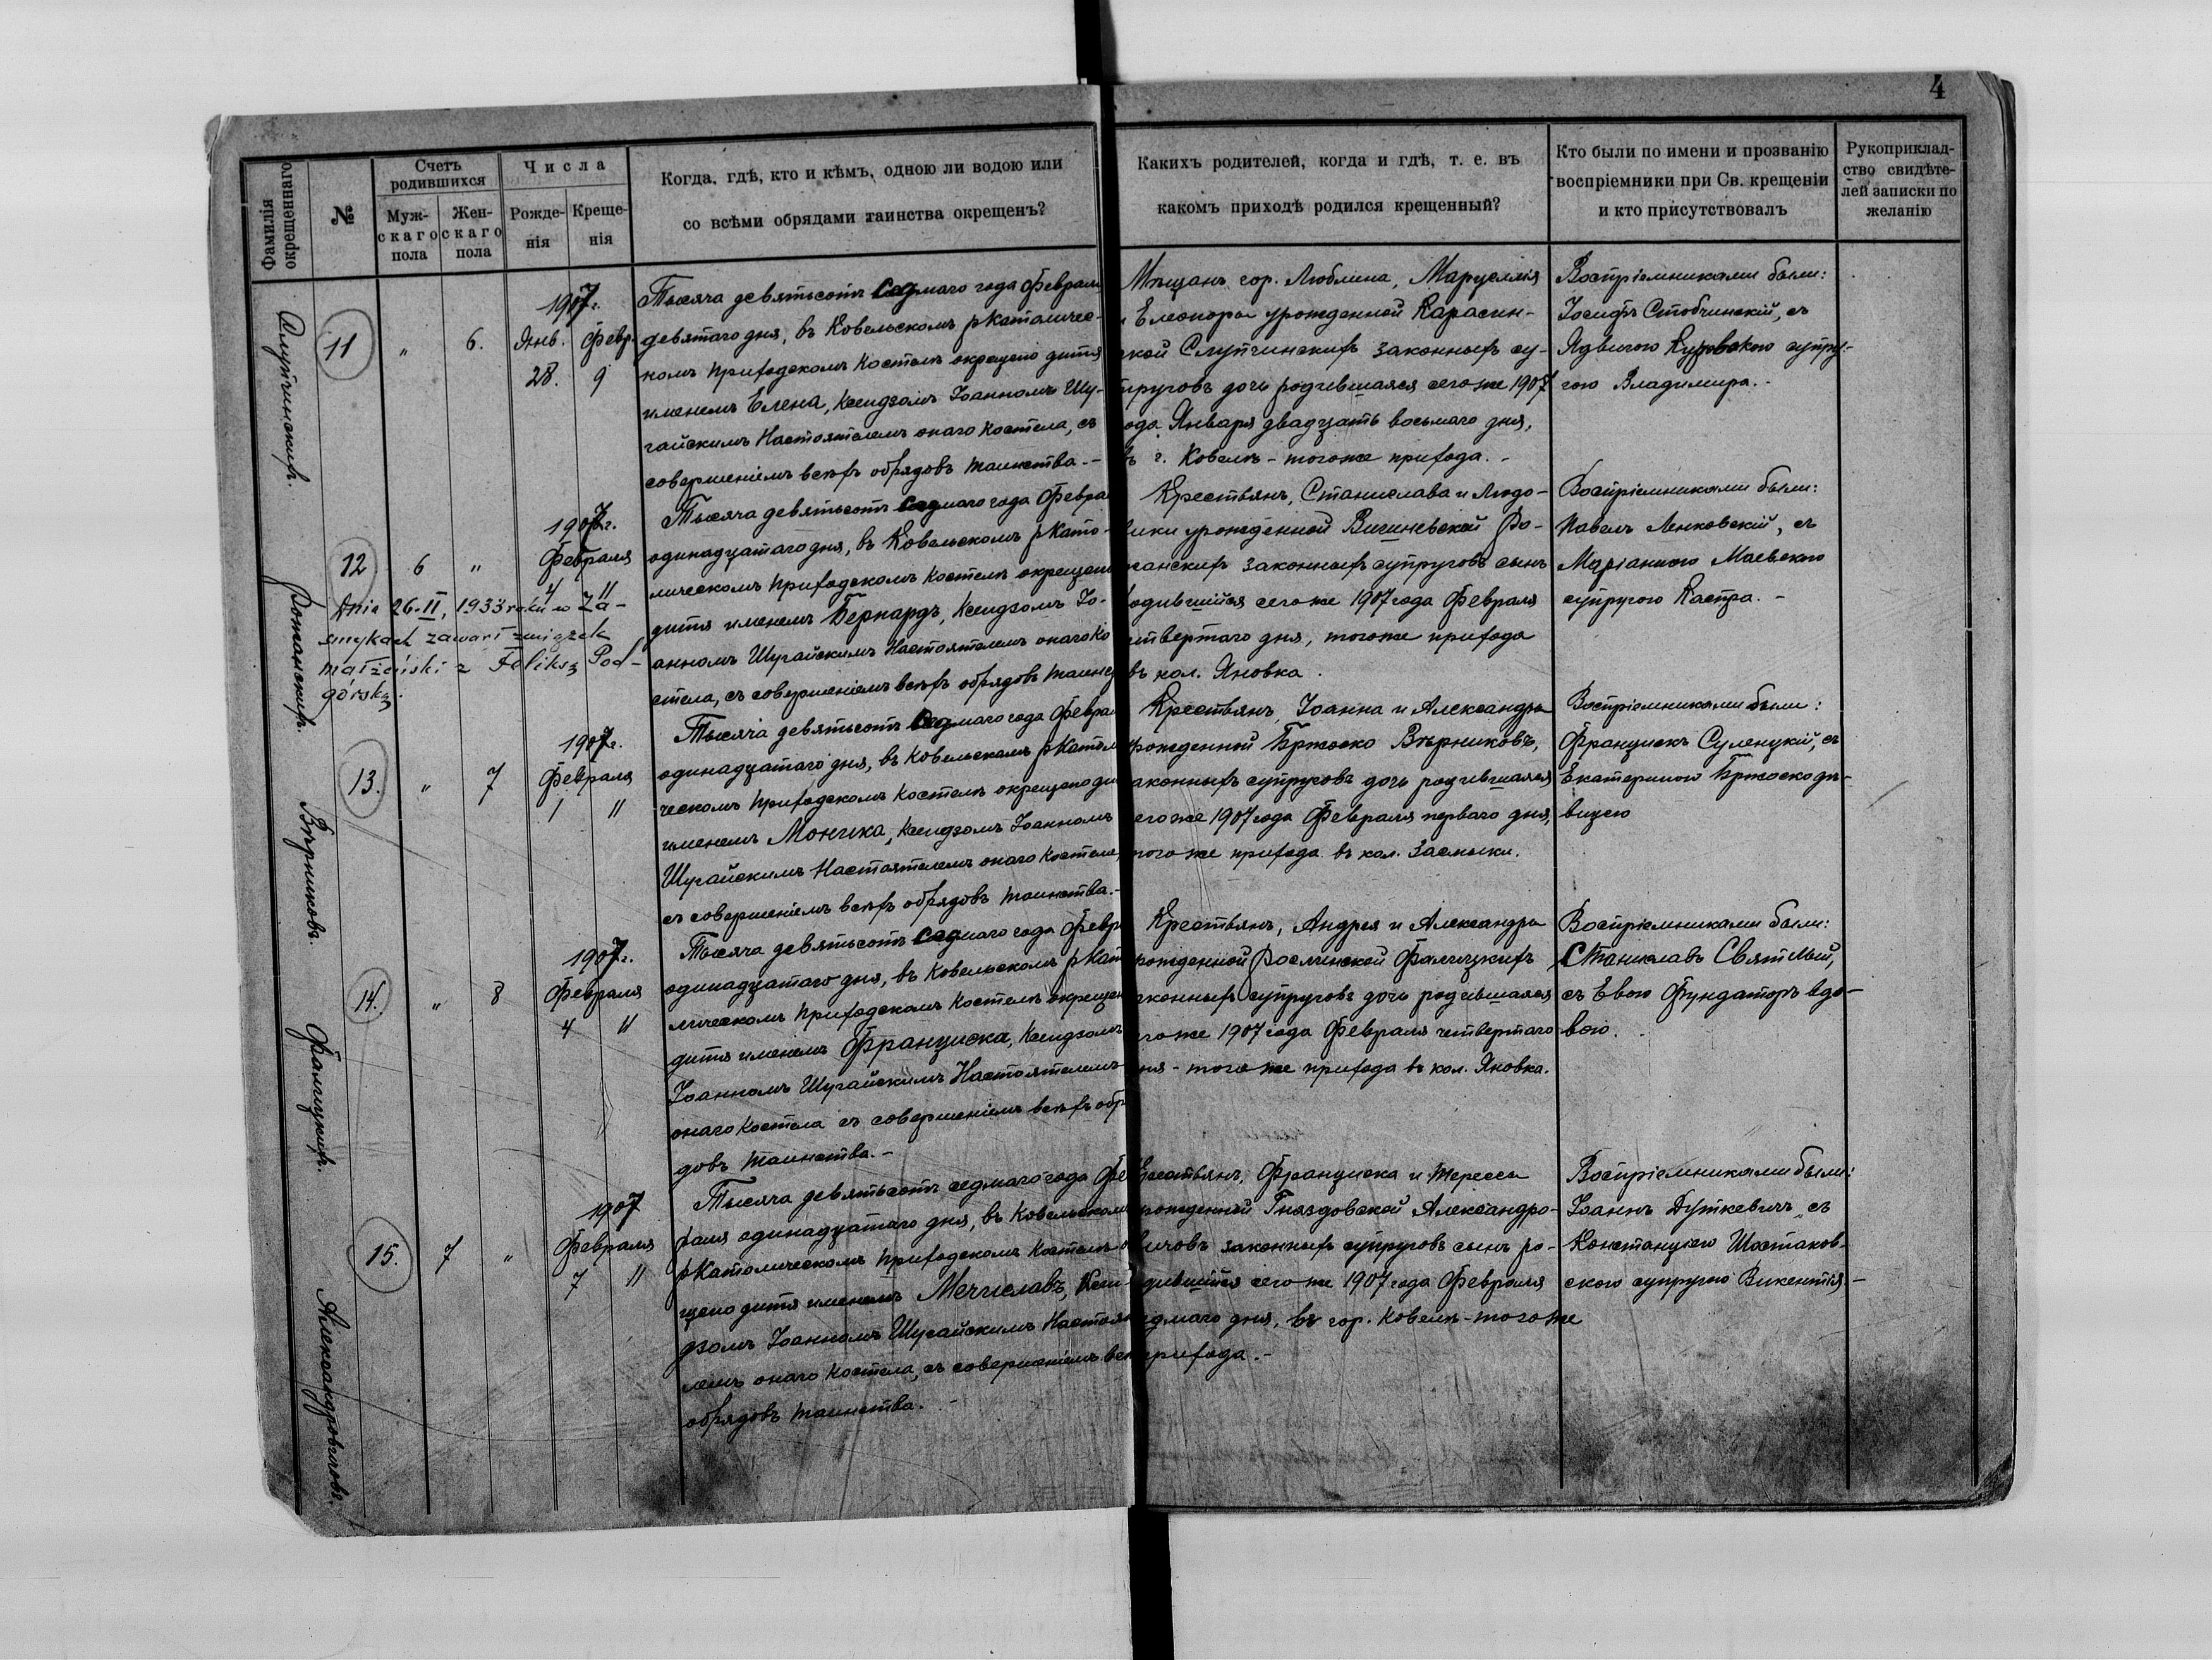 4
Фамилія окрещеннаго
№
Счетъ родившихся
Муж-
скаго
пола
Жен-
скаго
пола
Числа
Рожде-
нія
Креще-
нія
Когда, гдѣ, кто и кѣмъ, одною ли водою или
со всѣми обрядами таинства окрещенъ?
Какихъ родителей, когда и гдѣ, т. е. въ
какомъ приходѣ родился крещенный?
Кто были по имени и прозванію
воспріемники при Св. крещеніи
и кто присутствовалъ
Рукоприклад-
ство свидѣте-
лей записки по
желанію
11
"
6.
1907г.
Янв. Февр.
28. 9
Тысяча девятьсотъ седмаго года Февраля
девятаго дня, въ Ковельскомъ р Католичес-
комъ приходскомъ костелѣ окрещено дитя
именемъ Елена, Ксендзомъ Іоанномъ Шу-
гайскимъ Настоятелемъ онаго костела, съ
совершеніемъ всѣхъ обрядовъ таинства.-
Мѣщанъ гор. Люблина, Марцеллія
Елеоноры урожденной Карасин-
ской Слупчинскихъ законныхъ су-
пруговъ дочь родившаяся сего же 1907
ода Января двадцать восьмаго дня,
въ г. Ковелѣ - того же прихода.-
Воспріемниками были:
Іосифъ Стобчинскій, съ
Ядвигою Куровскою супру-
гою Владимира.-
12
6
"
1907г.
Февраля
4 11
Dnia 26-II, 1933 roku w Za-
smykach zawarł związek
małżeński z Feliksą Pod-
górską.
Романскихъ.
Тысяча девятьсотъ седмаго года Февра
одинадцатаго дня, въ Ковельскомъ р Като-
лическомъ приходскомъ костелѣ окрещено
дитя именемъ Бернардъ, Ксендзомъ Іо-
анномъ Шугайскимъ Настоятелемъ онаго ко
стела, съ совершеніемъ всѣхъ обрядовъ таинс
Крестьянъ, Станислава и Людо-
вики урожденной Вишневской Ро-
манскихъ законныхъ супруговъ сынъ
родившійся сего же 1907 года Февраля
четвертаго дня, того же прихода
въ кол. Яновка.
Воспріемниками были:
Павелъ Ленковскій, съ
Маріанною Маевскою
супругою Каспра.-
13.
"
7
1907г.
Февраля
1 11
Вѣрниковъ.
Тысяча девятьсотъ седмаго года Феврал
одинадцатаго дня, въ Ковельскомъ р Катол
ческомъ приходскомъ костелѣ окрещено ди
именемъ Моника, Ксендзомъ Іоанномъ
Шугайскимъ Настоятелемъ онаго костела,
съ совершеніемъ всѣхъ обрядовъ таинства.-
Крестьянъ, Іоанна и Александры
рожденной Бржоско Вѣрниковъ,
аконныхъ супруговъ дочь родившаяся
его же 1907 года Февраля перваго дня,
того же прихода въ кол. Засмыки.
Воспріемниками были:
Францискъ Сулецкій, съ
Екатериною Бржоско дѣ-
вицею
14.
"
8
1907г.
Февраля
4 11
Фалицкихъ.
Тысяча девятьсотъ седмаго года Февр
одинадцатаго дня, въ Ковельскомъ р Кат
лическомъ приходскомъ костелѣ окрещен
дитя именемъ Франциска, Ксендзомъ
Іоанномъ Шугайскимъ Настоятелемъ
онаго костела съ совершеніемъ всѣхъ обр
довъ таинства.-
Крестьянъ, Андрея и Александры
рожденной Рослинской Фалицкихъ
аконныхъ супруговъ дочь родившаяся
го же 1907 года Февраля четвертаго
ня - того же прихода въ кол. Яновка.
Воспріемниками были:
Станиславъ Святлый,
съ Евою Фундаторъ вдо-
вою.
15.
7
"
1907
Февраля
7 11
Александровичовъ.
Тысяча девятьсотъ седмаго года Фе
раля одинадцатаго дня, въ Ковельскомъ
р Католическомъ приходскомъ костелѣ о
щено дитя именемъ Мечиславъ, Ксен-
дзомъ Іоанномъ Шугайскимъ Настоя
лемъ онаго костела, съ совершеніемъ всѣ
обрядовъ таинства.-
Крестьянъ, Франциска и Тересы
рожденной Гняздовской Александро-
вичовъ законныхъ супруговъ сынъ ро-
дившійся сего же 1907 года Февраля
едмаго дня, въ гор. Ковелѣ - того же
прихода.-
Воспріемниками были:
Іоаннъ Дуткевичъ, съ
Констанціею Шостаков-
скою супругою Викентія.-